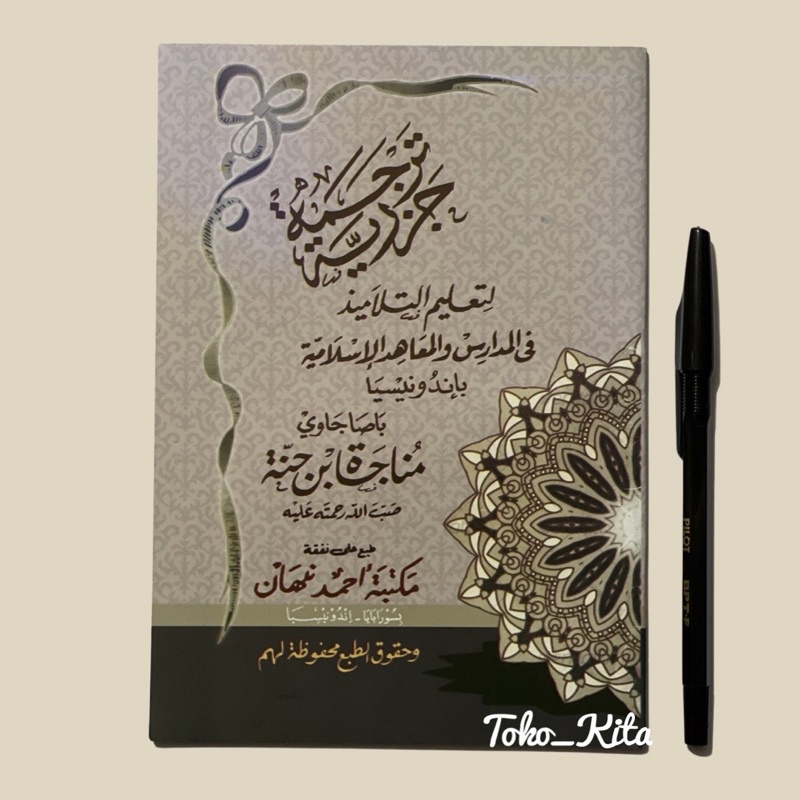 ترجمة
جزرية
لتعليم التلاميذ
في المدارس والمعاهد الإسلامية
بإندونيسيا
باصا جاوي
مناجاة ابن جنّة
صَبَّ الله رحمته عليه
طبع على نفقة
مكتبة أحمد نبهان
بسورابايا - إندونيسيا
وحقوق الطبع محفوظة لهم
PILOT BPT-P
Toko_Kita